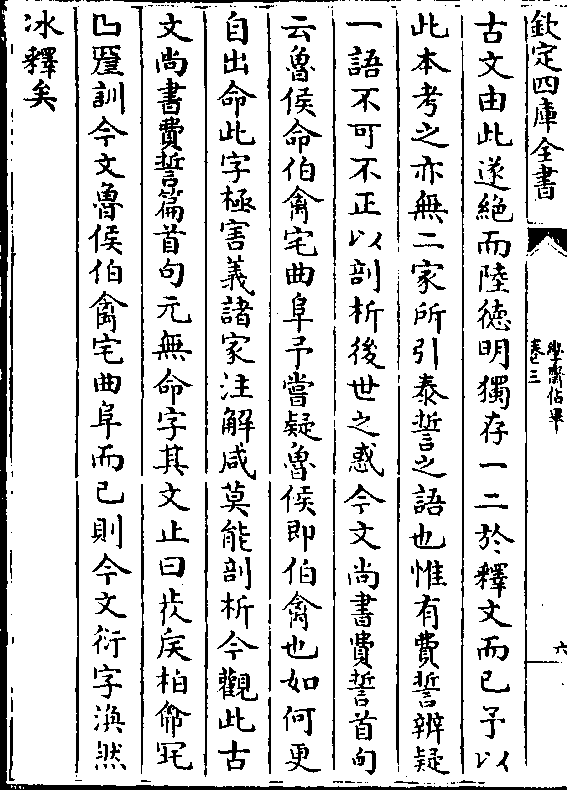 欽定四庫全書
學齋佔畢
卷三
六
古文由此遂絶而陸德明獨存一二於釋文而已予以
此本考之亦無二家所引泰誓之語也惟有費誓辨疑
一語不可不正以剖析後世之惑今文尚書費誓首句
云魯侯命伯禽宅曲阜予嘗疑魯侯即伯禽也如何更
自出命此字極害義諸家注解咸莫能剖析今觀此古
文尚書費誓篇首句元無命字其文止曰㞥矦柏
訓今文魯侯伯禽宅曲阜而已則今文衍字渙然
冰釋矣